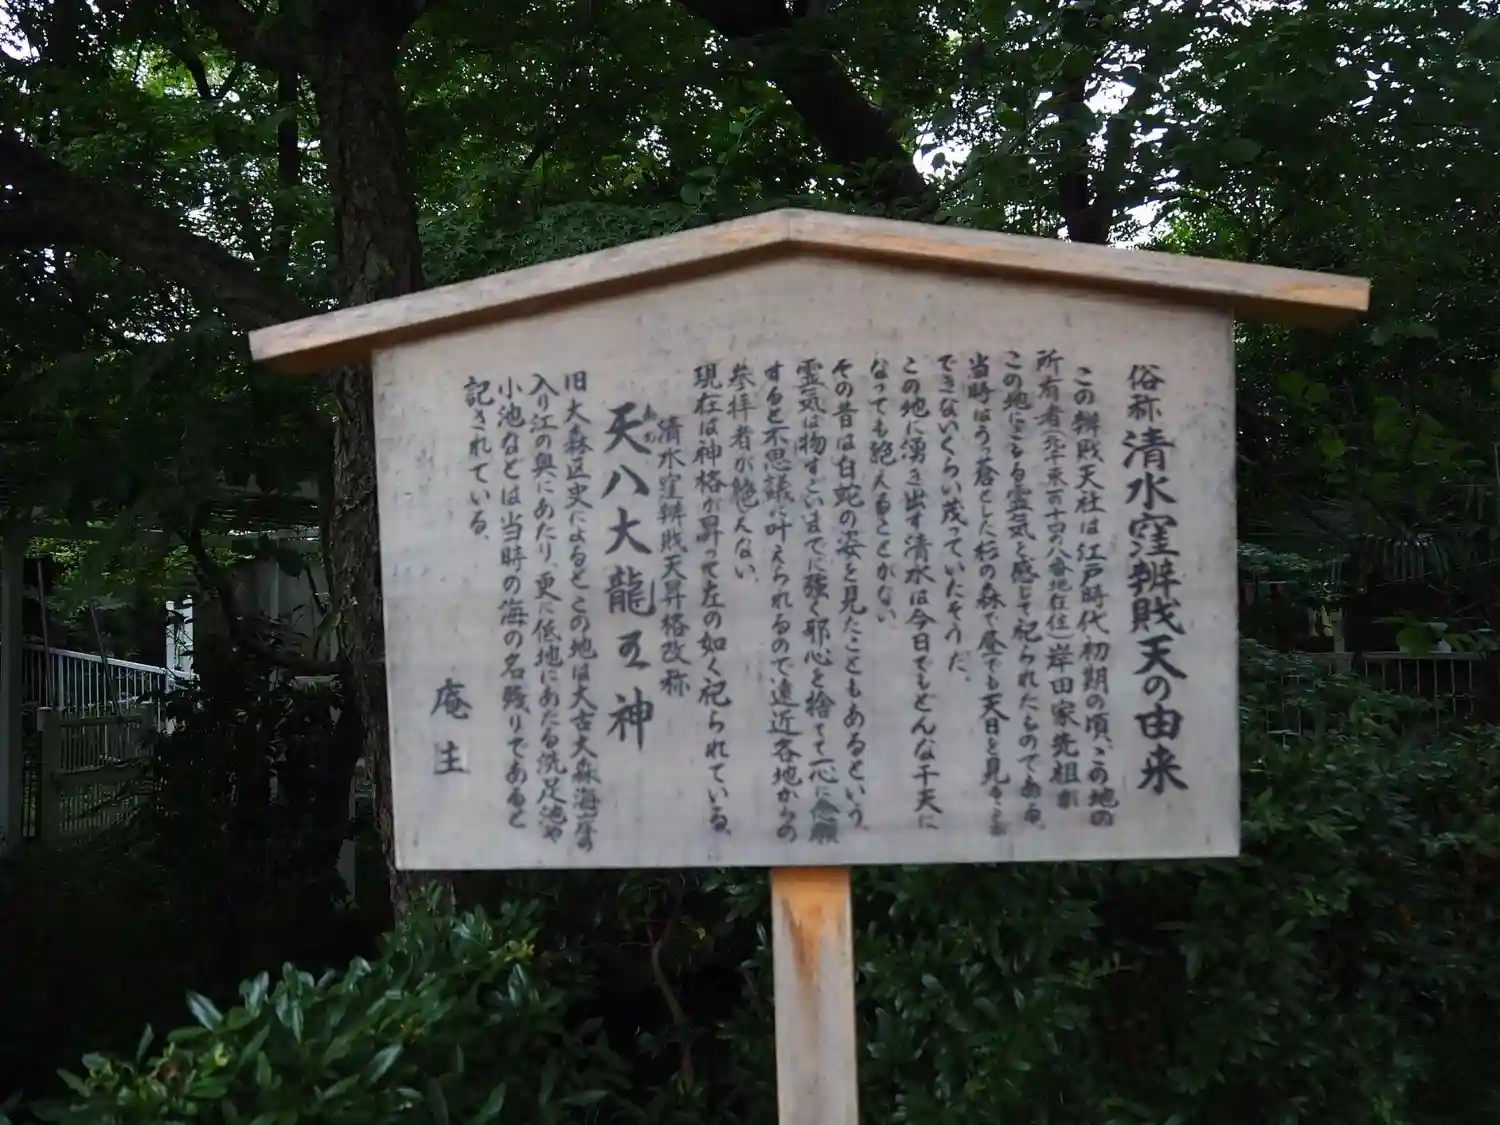 俗称 清水窪辨財天の由来
この辨財天社は江戸時代初期の頃、この地の
所有者(北千束一丁目四の八番地在住)岸田家先祖が
この地にこもる霊気を感じて祀られたものである。
当時はうっ蒼とした杉の森で昼でも天日を見ることが
できないくらい茂っていたそうだ。
この地に湧き出す清水は今日でもどんな干天に
なっても絶えることがない
その昔は白蛇の姿を見たこともあるという。
霊気は物すごいまでに強く邪心を捨てて一心に念願
すると不思議に叶えられるので遠近各地からの
参拝者が絶えない
現在は神格が昇って左の如く祀られている。
清水窪辨財天昇格改称
天八大龍王神
旧大森区史によるとこの地は太古大森海岸の
入り江の奥にあたり、更に低地にあたる洗足池や
小池などは当時の海の名残りであると
記されている。
庵主